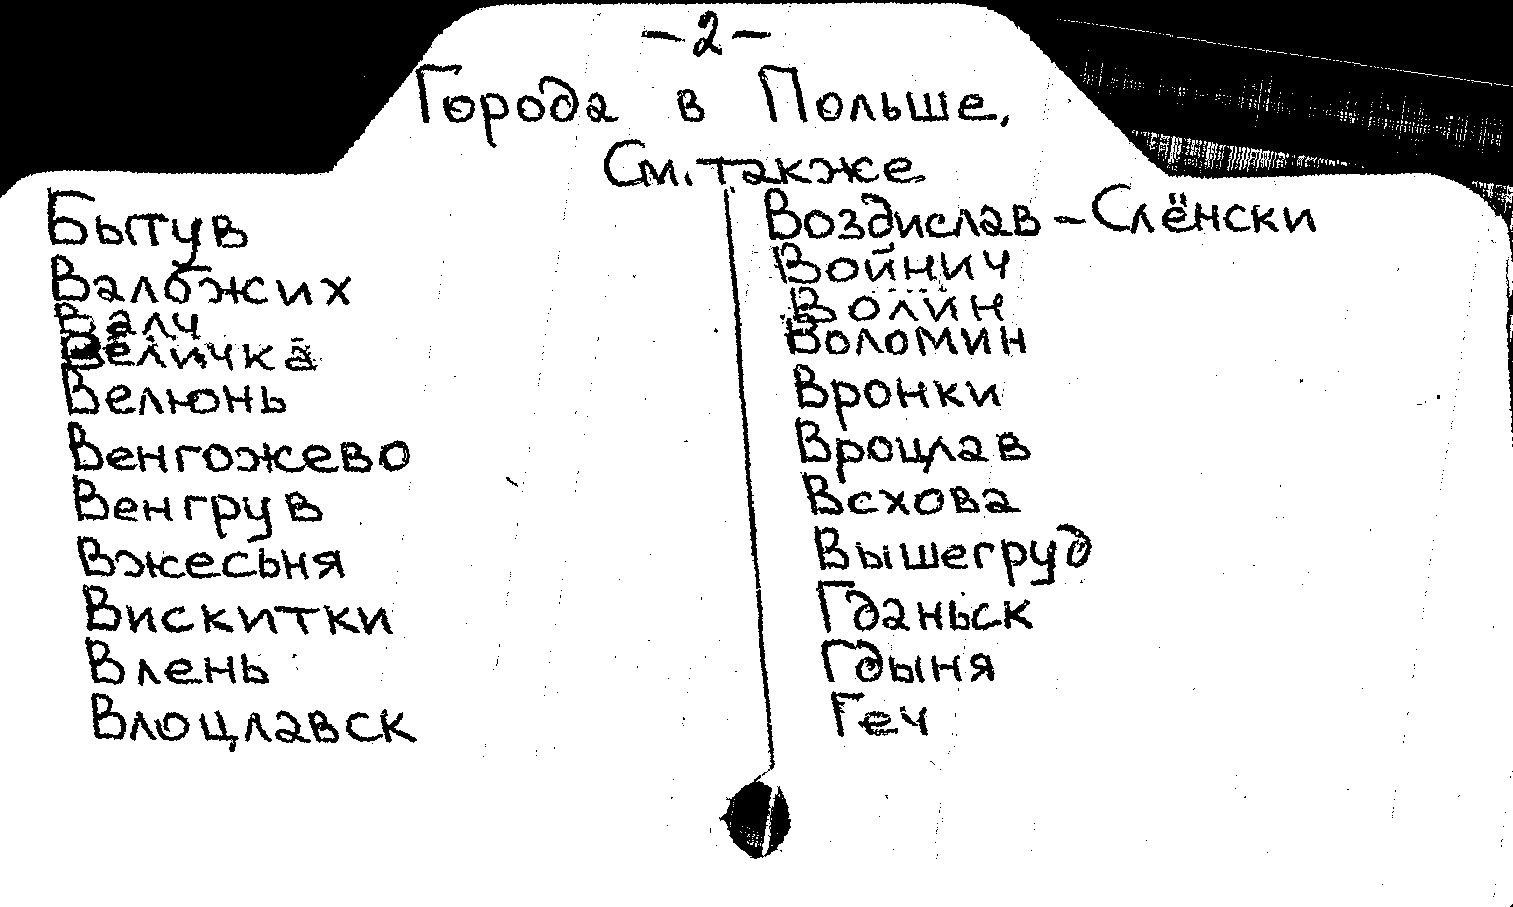 -2-
Города в Польше.
См. также
Бытув
Валбжих
Валч
Величка
Велюнь
Венгожево
Венгрув
Вжесьня
Вискитки
Влень
Влоцлавск
Воздислав-Слёнски
Войнич
Волин
Воломин
Вронки
Вроцлав
Всхова
Вышегруд
Гданьск
Гдыня
Геч